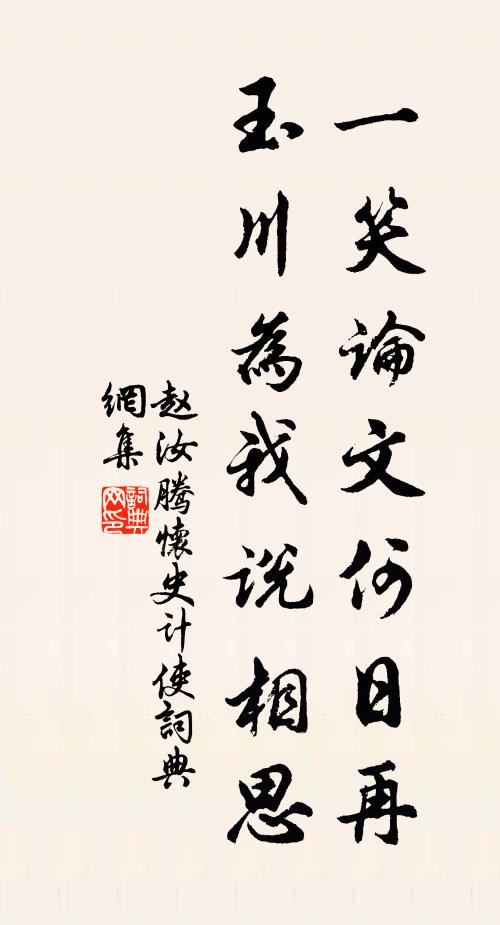 一笑論文何日再
玉川為我說相思
赵汝腾懷史计使詞典
網集
詞典
网印